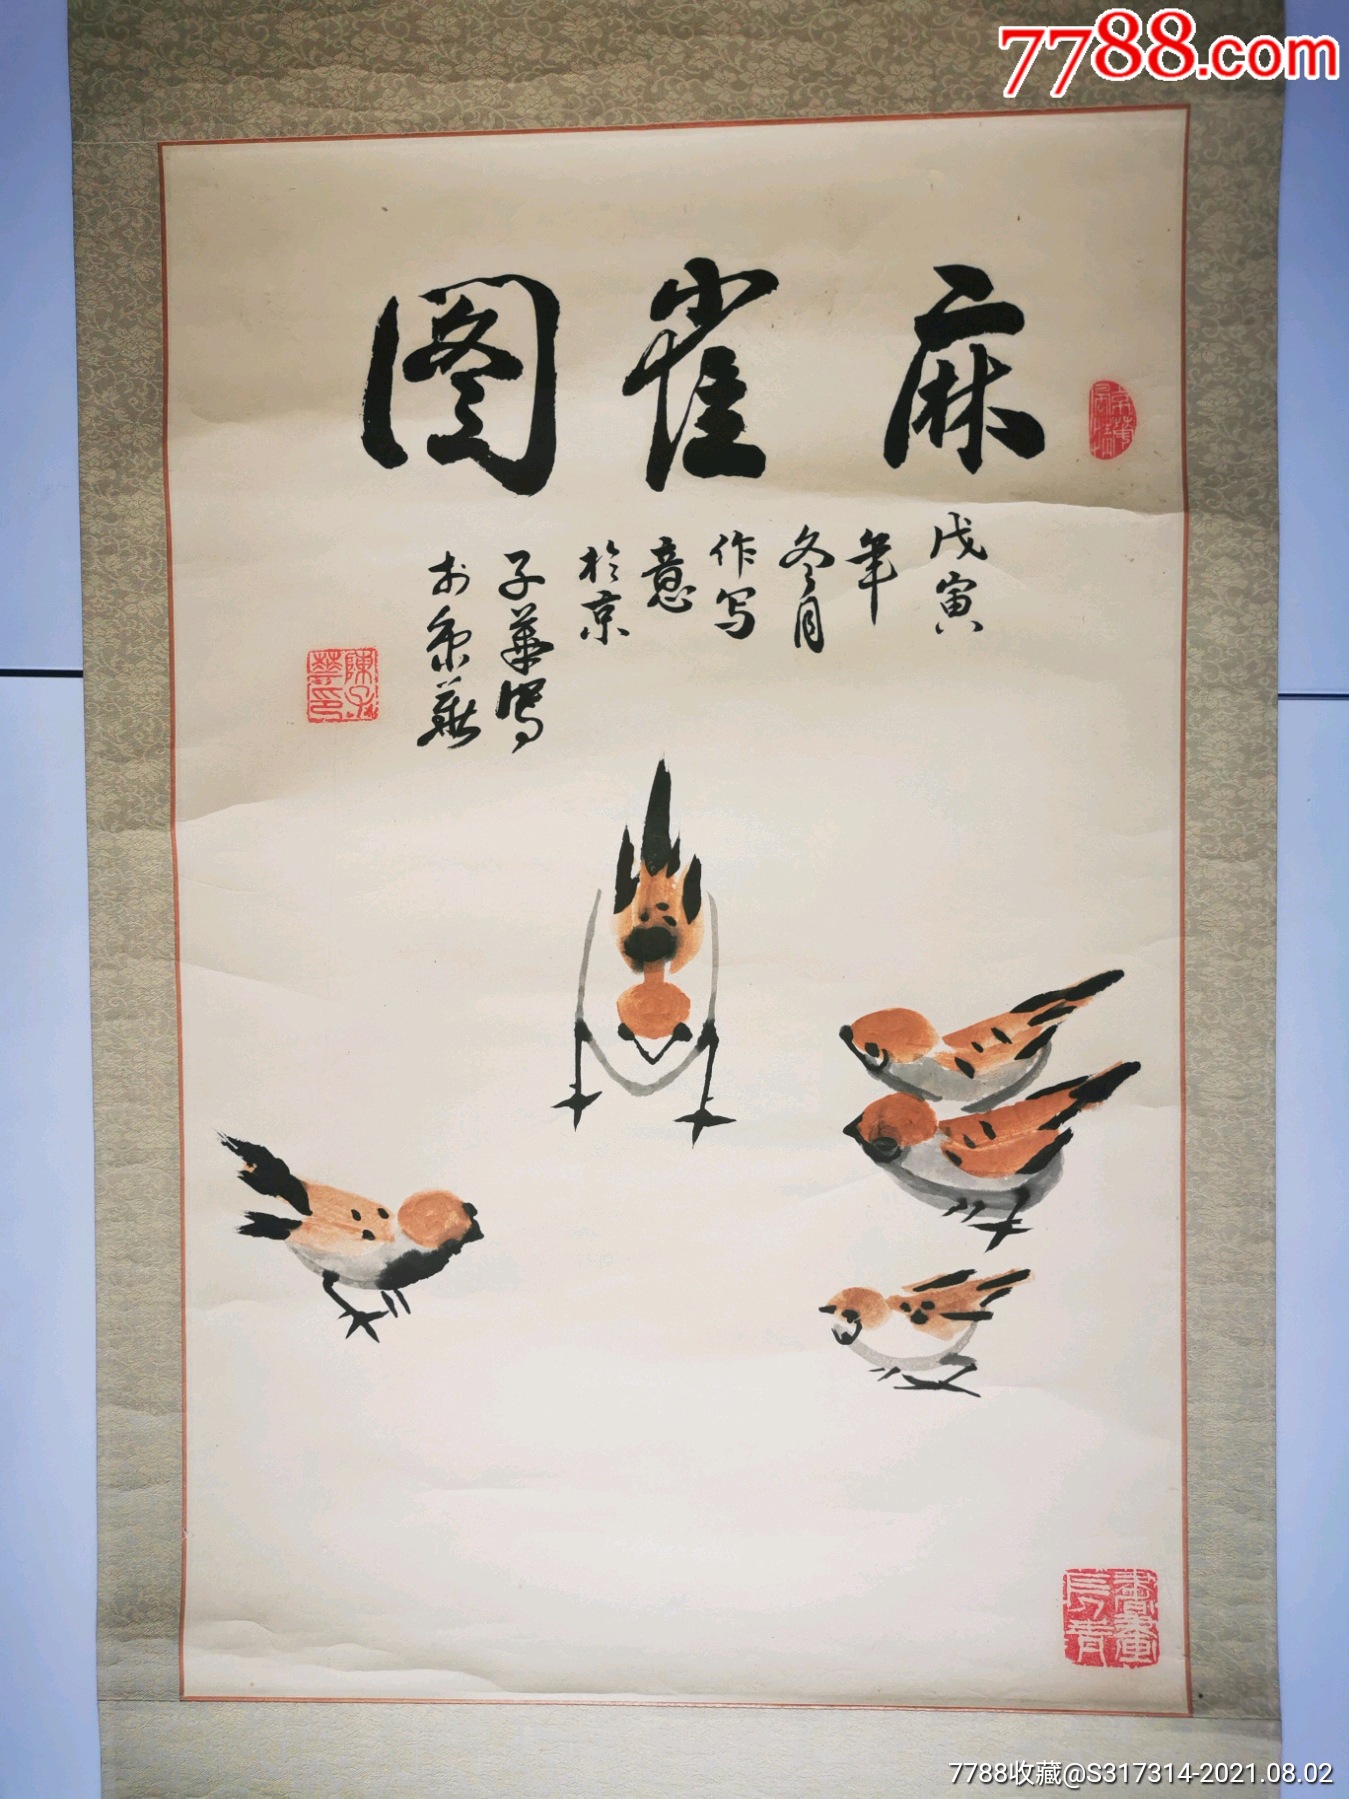 7788.com
麻雀图
戊寅
年
冬月
作写
意
於京
子華写
於京華
陳子華印
7788收藏@S317314-2021.08.02